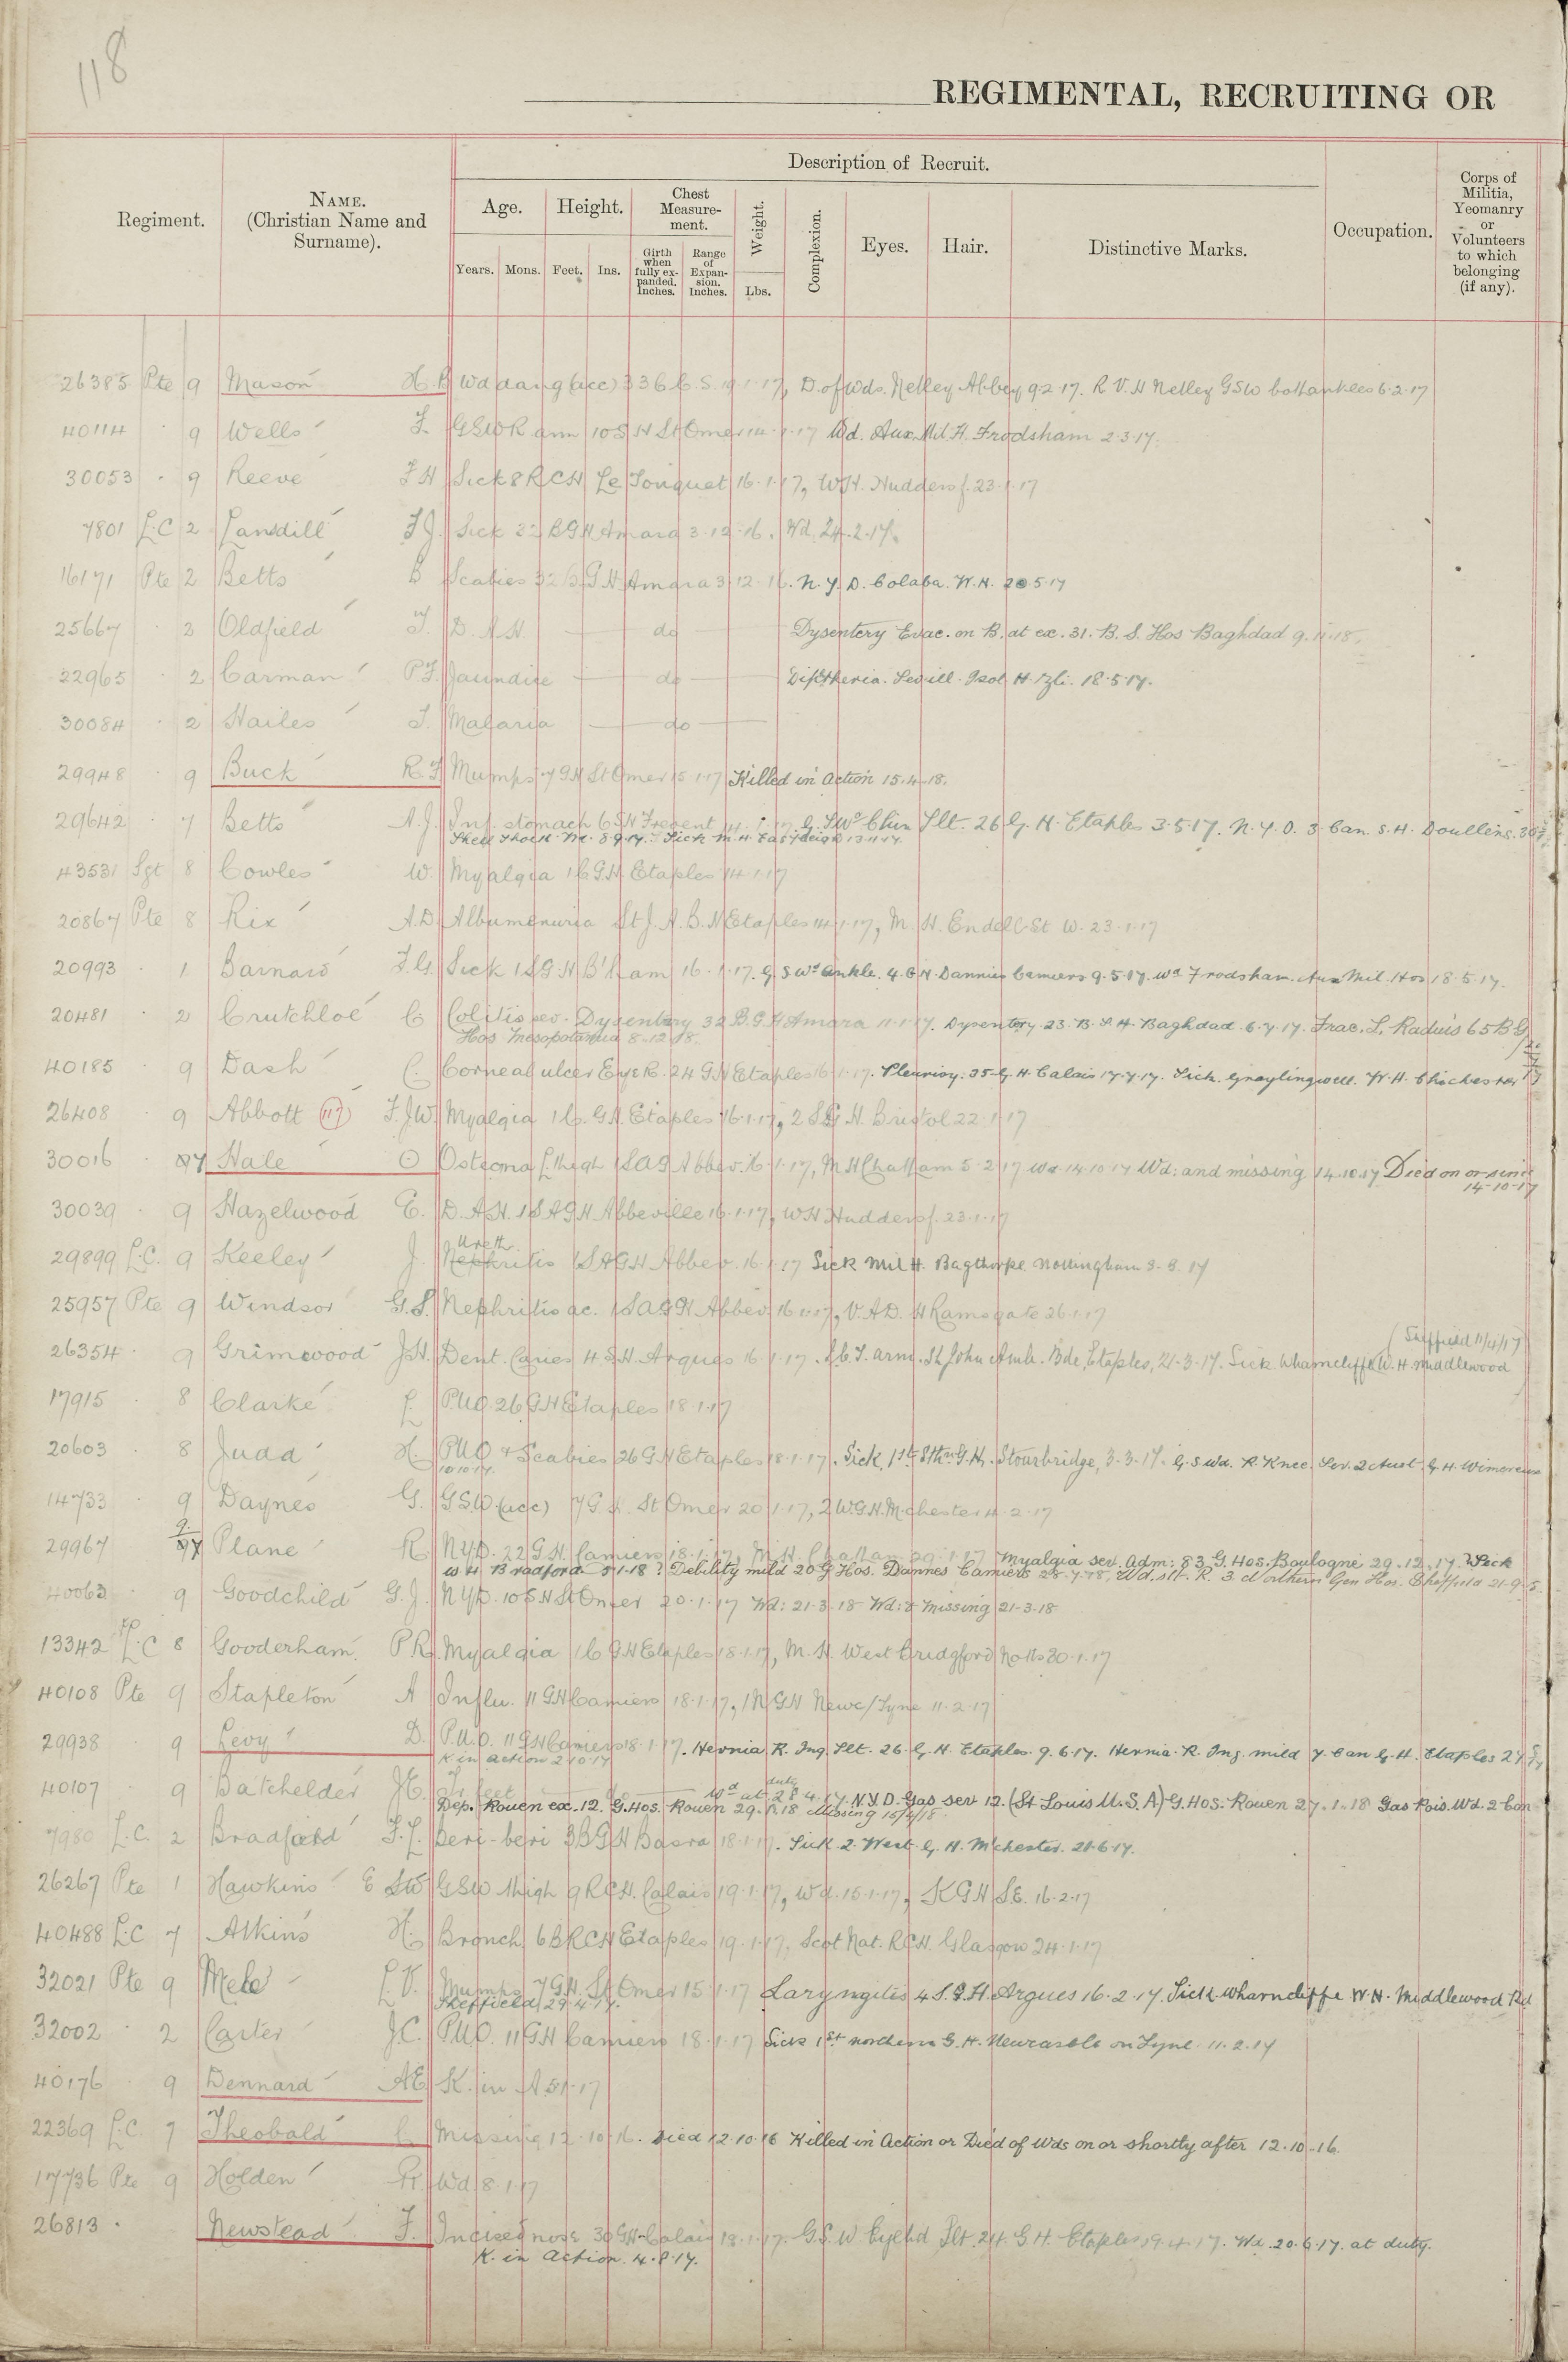 118
REGIMENTAL, RECRUITING OR
Description of Recruit.
Regiment.
NAME.
(Christian Name and
Surname).
Age.
Height.
Chest
Measure-
ment.
Weight.
Complexion.
Eyes.
Hair.
Distinctive Marks.
Occupation.
Corps of
Militia,
Yeomanry
or
Volunteers
to which
belonging
(if any).
Years.
Mons.
Feet.
Ins.
Girth
when
fully ex-
panded.
Inches.
Range
of
Expan-
sion.
Inches.
Lbs.
26385 Pte 9 Mason H. Wd (acc) 3 36 C.C.S. 19.1.17, D. of Wds. Netley Abbey 9.2.17. R.V.H Netley GSW both ankles 6.2.17
40114 · 9 Wells F. GSW R arm 10 S H St Omer 14.1.17 Wd. Aux. Mil. H. Frodsham 2.3.17.
30053 · 9 Reeve F H Sick 8 RCH Le Touquet 16.1.17, W.H. Huddersf. 23.1.17
7801 L.C 2 Lansdill F J. Sick 32 BGH Amara 3.12.16. Wd. 24.2.17.
16171 Pte 2 Betts B Scabies 32 B.G H Amara 3.12.16. N.Y.D. Colaba. W.H. 20.5.17
25667 · 2 Oldfield F. D.A.H. — do — Dysentery Evac. on B. at ex. 31. B. S. Hos Baghdad 9.11.18.
22965 · 2 Carman P F. Jaundice — do — Diptheria. Sev ill. Isol. H. 18.5.17.
30084 · 2 Hailes F. Malaria — do —
29948 · 9 Buck R F Mumps 7 GH St Omer 15.1.17 Killed in Action 15.4.18.
29642 · 7 Betts A.J. Inf. stomach 6 S H Frevent 14.1.17 G. S.Wd Chin Slt. 26 G. H. Etaples 3.5.17. N.Y.D. 3. Can. S.H. Doullens.
Shell Shock 8.9.17. Sick M.H.
43531 Sgt 8 Cowles W. Myalgia 16 G.H. Etaples 14.1.17
20867 Pte 8 Rix A.D Albumenuria St J. A. B. H Etaples 14.1.17, M. H. Endell St W. 23.1.17
20993 · 1 Barnard F.G. Sick 1 S G H B'ham 16.1.17. G S Wd ankle. 4. G H Dannes Camiers 9.5.17. Wd Frodsham. Aux Mil. Hos 18.5.17.
20481 · 2 Crutchloe C Colitis sev. Dysentery 32 B.G.H Amara 11.1.17. Dysentery 23. B. S. H. Baghdad. 6.7.17. Frac. L. Raduis 65 B G
Hos Mesopotamia 8.12.18.
40185 · 9 Dash C. Corneal ulcer Eye R. 24 GH Etaples 16.1.17. Pleurisy. 35. G. H. Calais 17.7.17. Sick. Graylingwell. W.H. Chichester
26408 · 9 Abbott (117) F.J.W. Myalgia 16. GH. Etaples 16.1.17, 2 S G H. Bristol 22.1.17
30016 · 7 Hale O Osteoma L. thigh 1 SAG Abbev. 16.1.17, M H Chatham 5.2.17 Wd 14.10.17 Wd: and missing 14.10.17 Died on or since
14.10.17
30039 · 9 Hazelwood E. D.A.H. 1 S A G H Abbeville 16.1.17, WH Huddersf. 23.1.17
29899 L.C. 9 Keeley J. Ureth Nephritis 1 SAGH Abbev. 16.1.17 Sick Mil H. Bagthorpe Nottingham 3.8.17
25957 Pte 9 Windsor G.S. Nephritis ac. 1 SAGH Abbev. 16.1.17, V.A.D. H Ramsgate 26.1.17
26354 · 9 Grimwood J.H. Dent. Caries 4 S.H. Arques 16.1.17. I.C.T. arm. St John Amb. Bde, Etaples, 21.3.17. Sick. Wharncliffe W.H. Middlewood
(Sheffield 11/4/17)
17915 · 8 Clarke L P.U.O. 26 G H Etaples 18.1.17
20603 · 8 Judd H. PUO & Scabies 26 G H Etaples 18.1.17. Sick, 1st Sthn G.H. Stourbridge, 3.3.17. G. S Wd. R. Knee. Sev. 2 Aust. G.H. Wimereux
10.10.17.
14733 · 9 Daynes G. G.S.W. (acc) 7 G.H. St Omer 20.1.17, 2 W.G.H. M.chester 4.2.17
29967 9 Plane R N.Y.D. 22 G H. Camiers 18.1.17, M.H. Chatham 29.1.17 Myalgia sev. adm: 83 G. Hos. Boulogne 29.12.17. Sick
W H Bradford 5.1.18 ? Debility mild 20 G Hos. Dannes Camiers 28.7.18, Wd. slt. R. 3 Northern Gen Hos. Sheffield 21.9.
40063 · 9 Goodchild G.J. N.Y.D. 10 S H St Omer 20.1.17 Wd: 21.3.18 Wd: & Missing 21.3.18
13342 L.C 8 Gooderham P R. Myalgia 16 GH Etaples 18.1.17, M. H. West Bridgford Notts 30.1.17
40108 Pte 9 Stapleton A Influ. 11 GH Camiers 18.1.17, 1 N G H Newc/Tyne 11.2.17
29938 · 9 Levy D. P.U.O. 11 GH Camiers 18.1.17. Hernia R. Ing Slt. 26. G. H. Etaples. 9.6.17. Hernia. R. Ing. mild 7. Can G. H. Etaples
K in action 2.10.17
40107 · 9 Batchelder H. Tr feet — do — Wd at duty 28.4.17. N.Y.D. Gas sev 12. (St Louis U.S.A) G. Hos. Rouen 27.1.18 Gas Pois. Wd. 2 Con
Dep. Rouen ex. 12. G. Hos. Rouen 29. .18 Missing 15/4/18
7980 L.C. 2 Bradford F.L. Beri-beri 3 B G H Basra 18.1.17. Sick. 2. West. G. H. M'chester. 21.6.17.
26267 Pte 1 Hawkins E SW GSW thigh 9 RCH. Calais 19.1.17, Wd. 15.1.17, K G H SE. 16.2.17
40488 L.C 7 Atkins H. Bronch. 6 BRCH Etaples 19.1.17, Scot Nat. RCH. Glasgow 24.1.17
32021 Pte 9 Mele L.V. Mumps 7 GH. St Omer 15.1.17 Laryngitis 4 S.G.H. Arques 16.2.17. Sick Wharncliffe W.H. Middlewood Rd
Sheffield 29.4.17.
32002 · 2 Carter J.C. P.U.O. 11 GH Camiers 18.1.17 Sick 1st Northern G. H. Newcastle on Tyne 11.2.17
40176 · 9 Dennard A E K. in A 5.1.17
22369 L.C. 7 Theobald C Missing 12.10.16. Died 12.10.16 Killed in Action or Died of Wds on or shortly after 12.10.16.
17736 Pte 9 Holden Wd 8.1.17
26813 · Newstead F. Incised nose 30 GH Calais 18.1.17. G.S.W Eyelid Slt. 24. G.H. Etaples 19.4.17. Wd. 20.6.17. at duty.
K. in Action. 4.8.17.